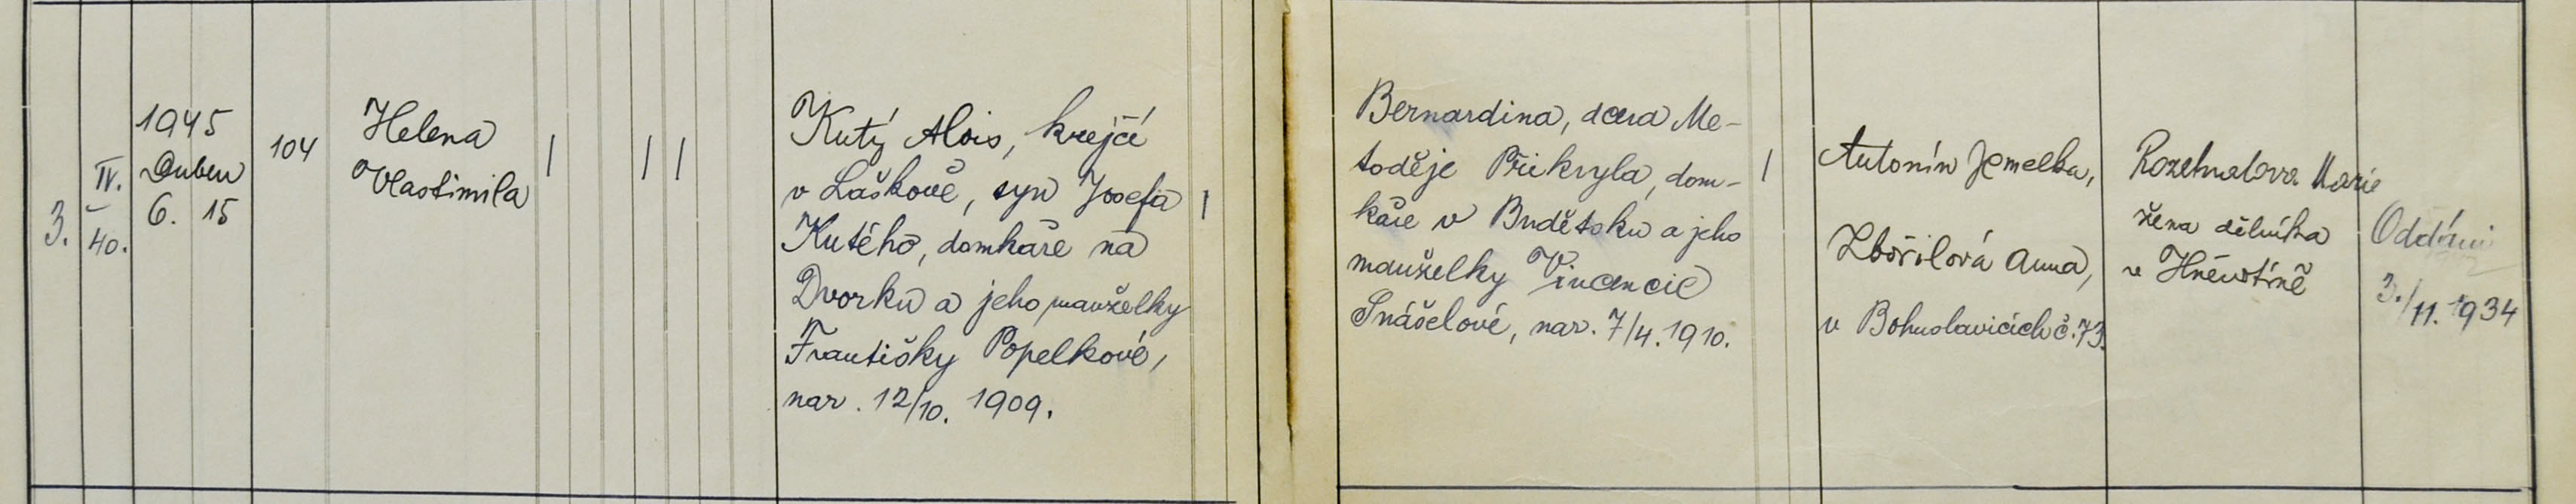 3.
IV.
40.
1945
Duben
6. 15
104
Helena
Vlastimila
Kutý Alois, krejčí
v Laškově, syn Josefa
Kutého, domkáře na
Dvorku a jeho manželky
Františky Popelkové,
nar. 12/10. 1909.
Bernardina, dcera Me-
toděje Přikryla, dom-
káře v Budětsku a jeho
manželky Vincencie
Snášelové, nar. 7/4. 1910.
Antonín Jemelka,
Zbořilová Anna,
v Bohuslavicích č. 73.
Rozehnalova Marie
žena dělníka
v Hněvotíně
Oddáni
3./11. 1934